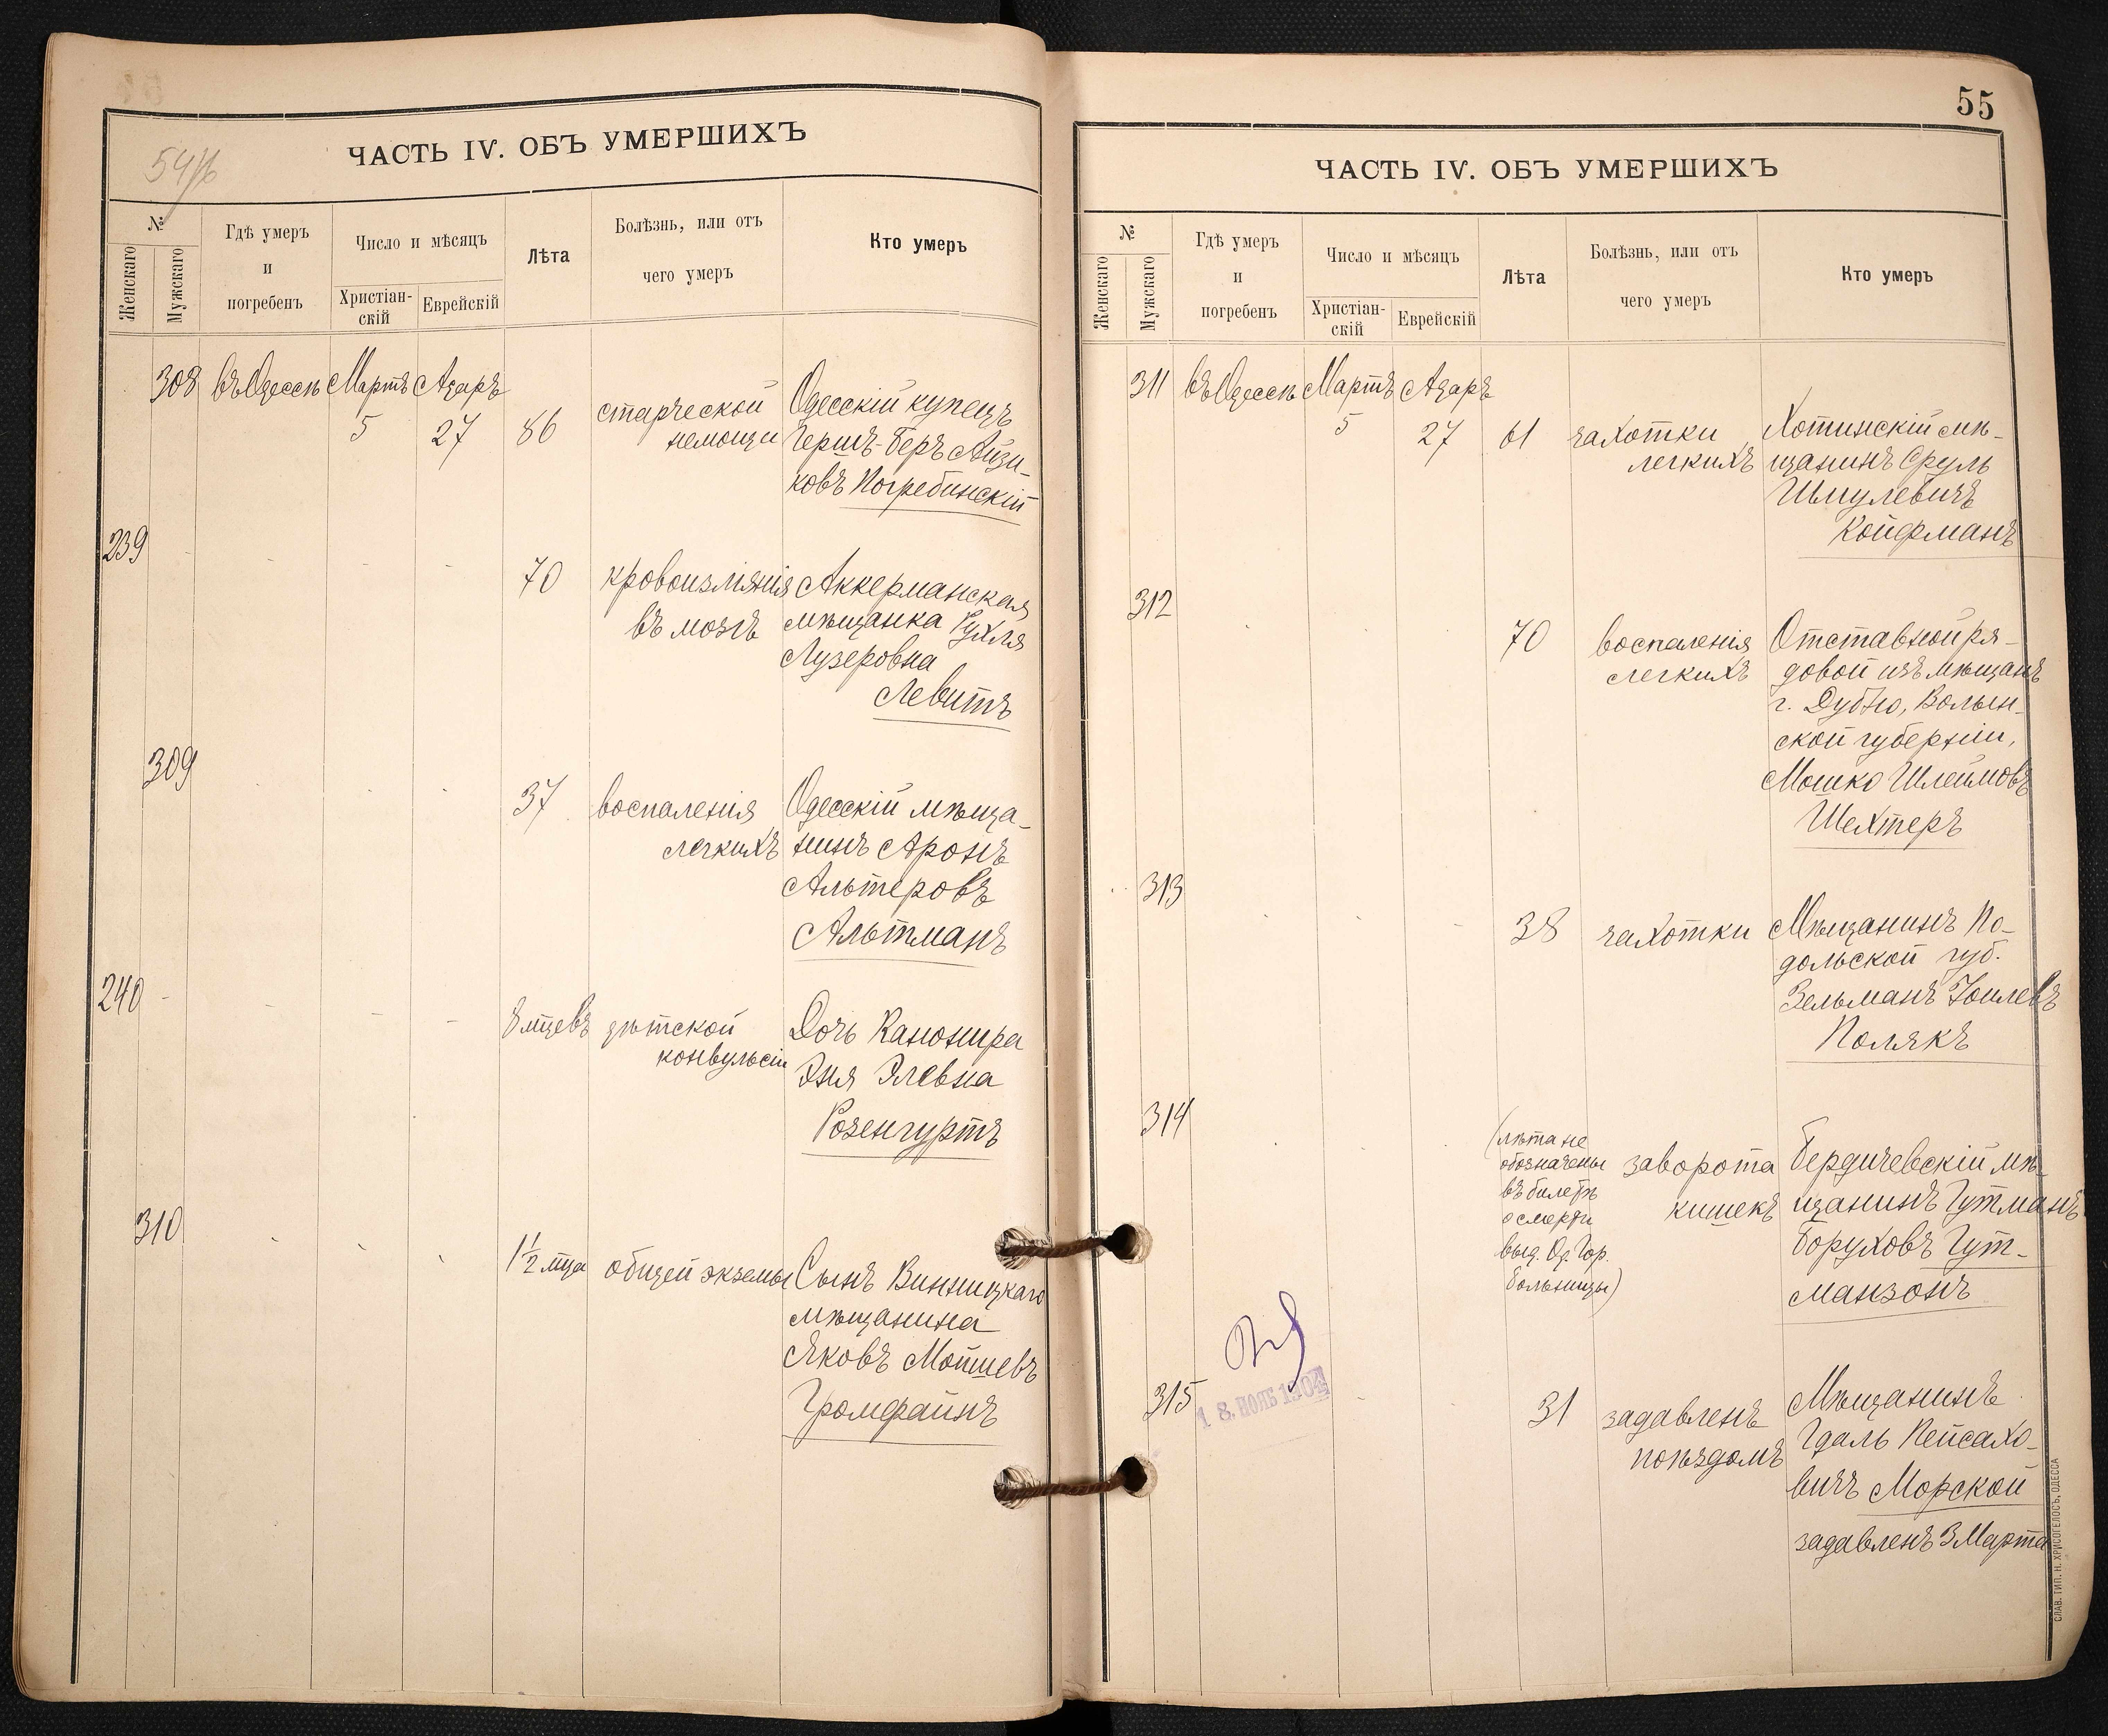 54/б
ЧАСТЬ IV. ОБЪ УМЕРШИХЪ
№
Женскаго
Мужскаго
Гдѣ умеръ
и
погребенъ
Число и мѣсяцъ
Христіан-
скій
Еврейскій
Лѣта
Болѣзнь, или отъ
чего умеръ
Кто умеръ
308 въ Одессѣ Мартъ Адаръ
5 27 86
старческой
немощи
Одесскій купецъ
Гершъ-Беръ Айзи-
ковъ Погребинскій
239
70
кровоизліянія
въ мозгъ
Аккерманская
мѣщанка Рухля
Лузеровна
Левитъ
309
37
воспаленія
легкихъ
Одесскій мѣща-
нинъ Аронъ
Альтеровъ
Альтманъ
240
8 мцевъ
дѣтской
конвульсіи
Дочь Канонира
Эня Элевна
Розенгуртъ
310
1½ мца
общей экземы
Сынъ Винницкаго
мѣщанина
Яковъ Мотшевъ
Громфайнъ
55
ЧАСТЬ IV. ОБЪ УМЕРШИХЪ
№
Женскаго
Мужскаго
Гдѣ умеръ
и
погребенъ
Число и мѣсяцъ
Христіан-
скій
Еврейскій
Лѣта
Болѣзнь, или отъ
чего умеръ
Кто умеръ
311 въ Одессѣ Мартъ Адаръ
5 27 61
чахотки
легкихъ
Хотинскій мѣ-
щанинъ Сруль
Шмулевичъ
Койфманъ
312
70
воспаленія
легкихъ
Отставной ря-
довой изъ мѣщанъ
г. Дубно, Волын-
ской губерніи,
Мошко Шлеймовъ
Шехтеръ
313
38
чахотки
Мѣщанинъ По-
дольской губ.
Зельманъ Іоилевъ
Полякъ
314
(лѣта не
обозначены
въ билетѣ
о смерти
выд. Од. Гор.
больницы)
заворота
кишекъ
Бердичевскій мѣ-
щанинъ Гутманъ
Боруховъ Гут-
манзонъ
18. НОЯБ 1904
315
31
задавленъ
поѣздомъ
Мѣщанинъ
Гдаль Пейсахо-
вичъ Морской
задавленъ 3 Марта
СЛАВ. ТИП. Н. ХРИСОГЕЛОСЪ, ОДЕССА